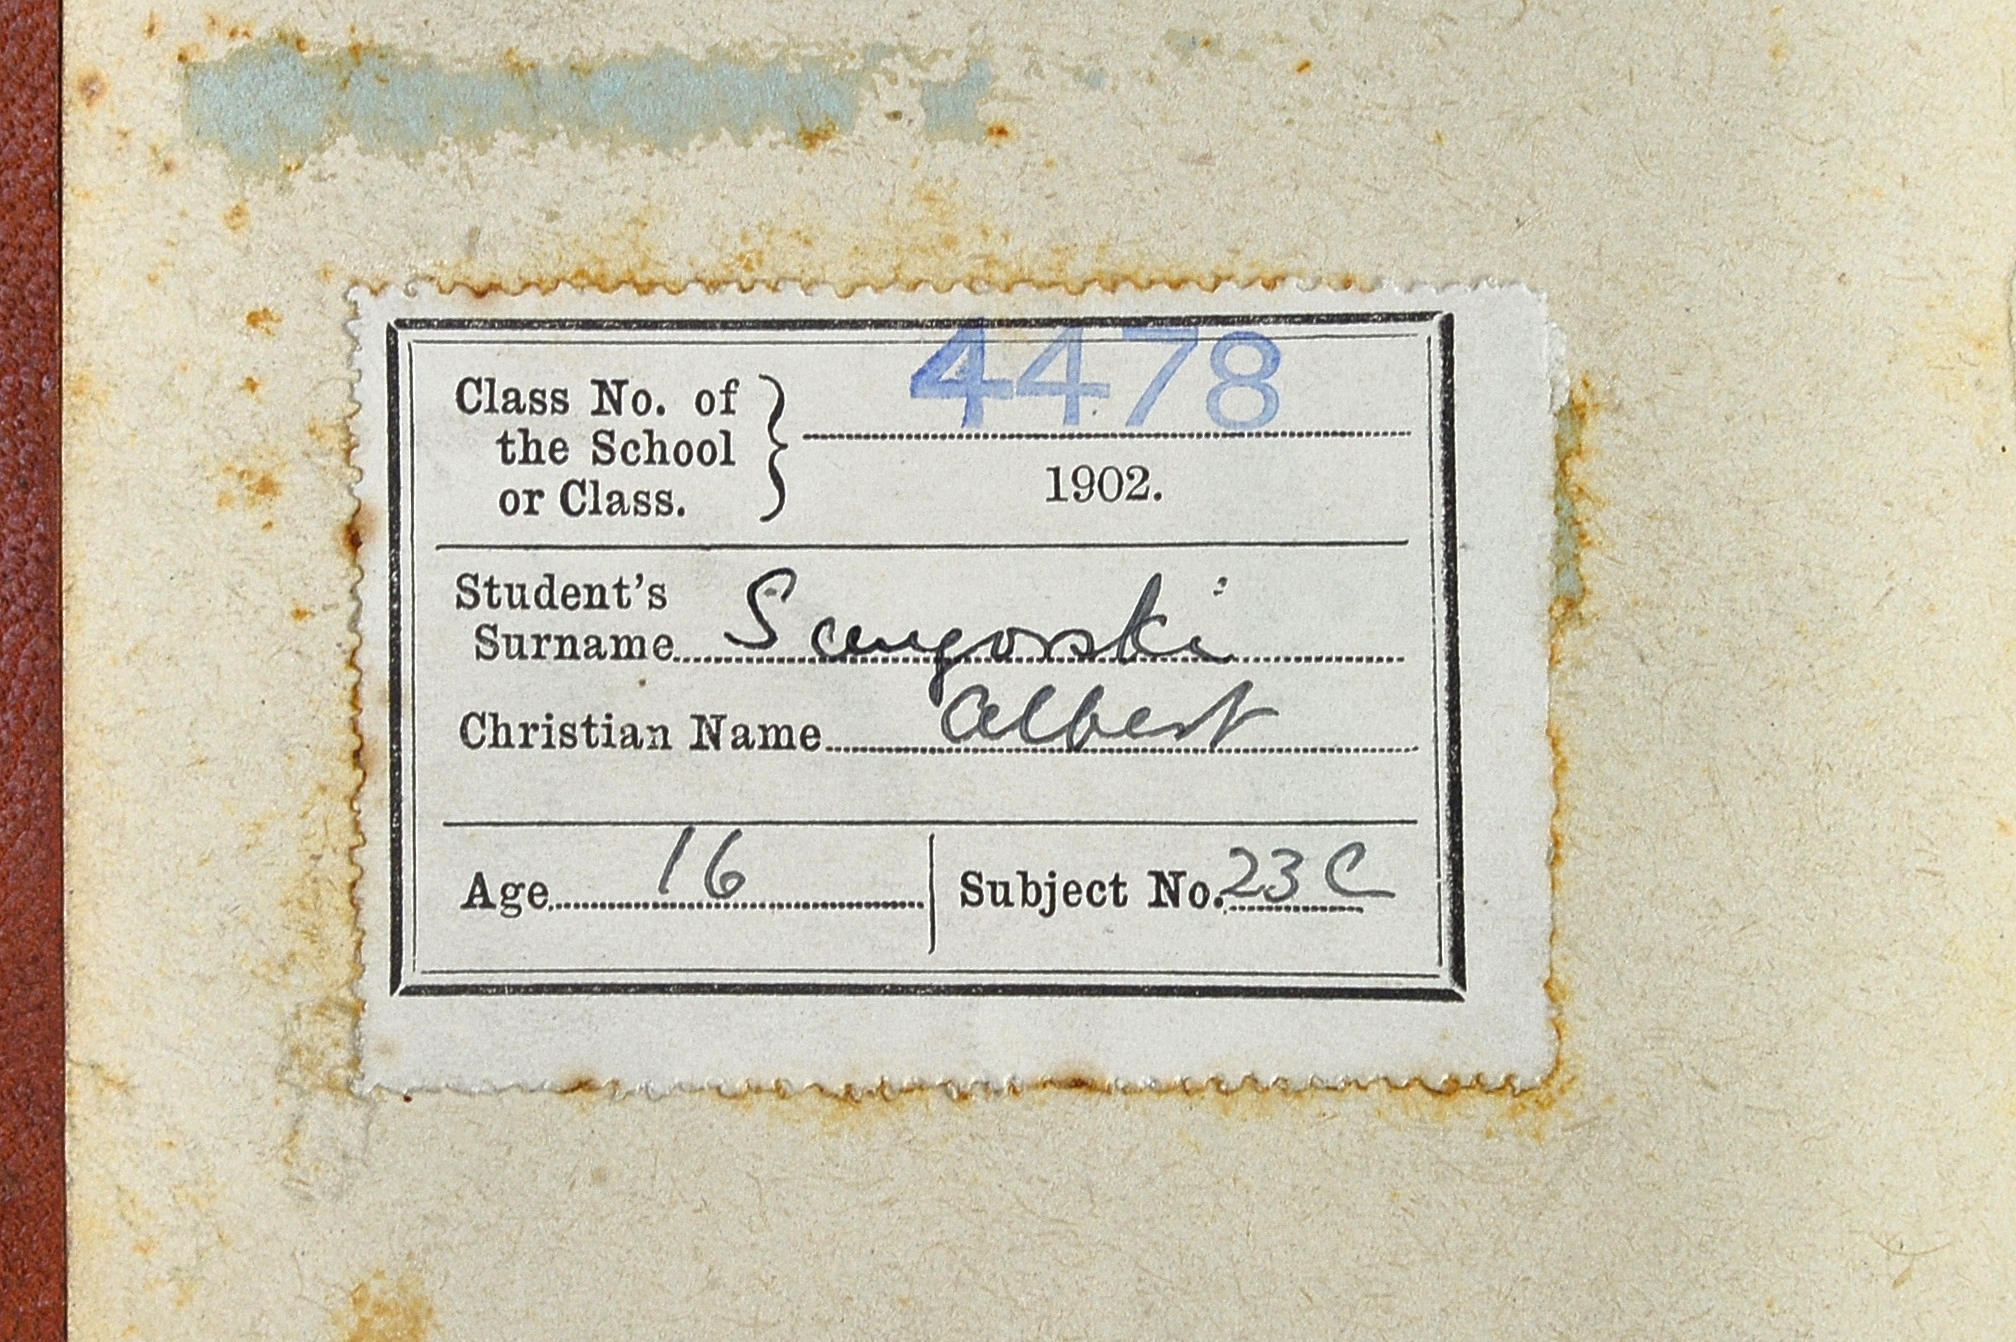 4478
Class No. of
the School
or Class.
1902.
Student's
Surname Sangorski
Christian Name Albert
Age 16
Subject No. 23 C